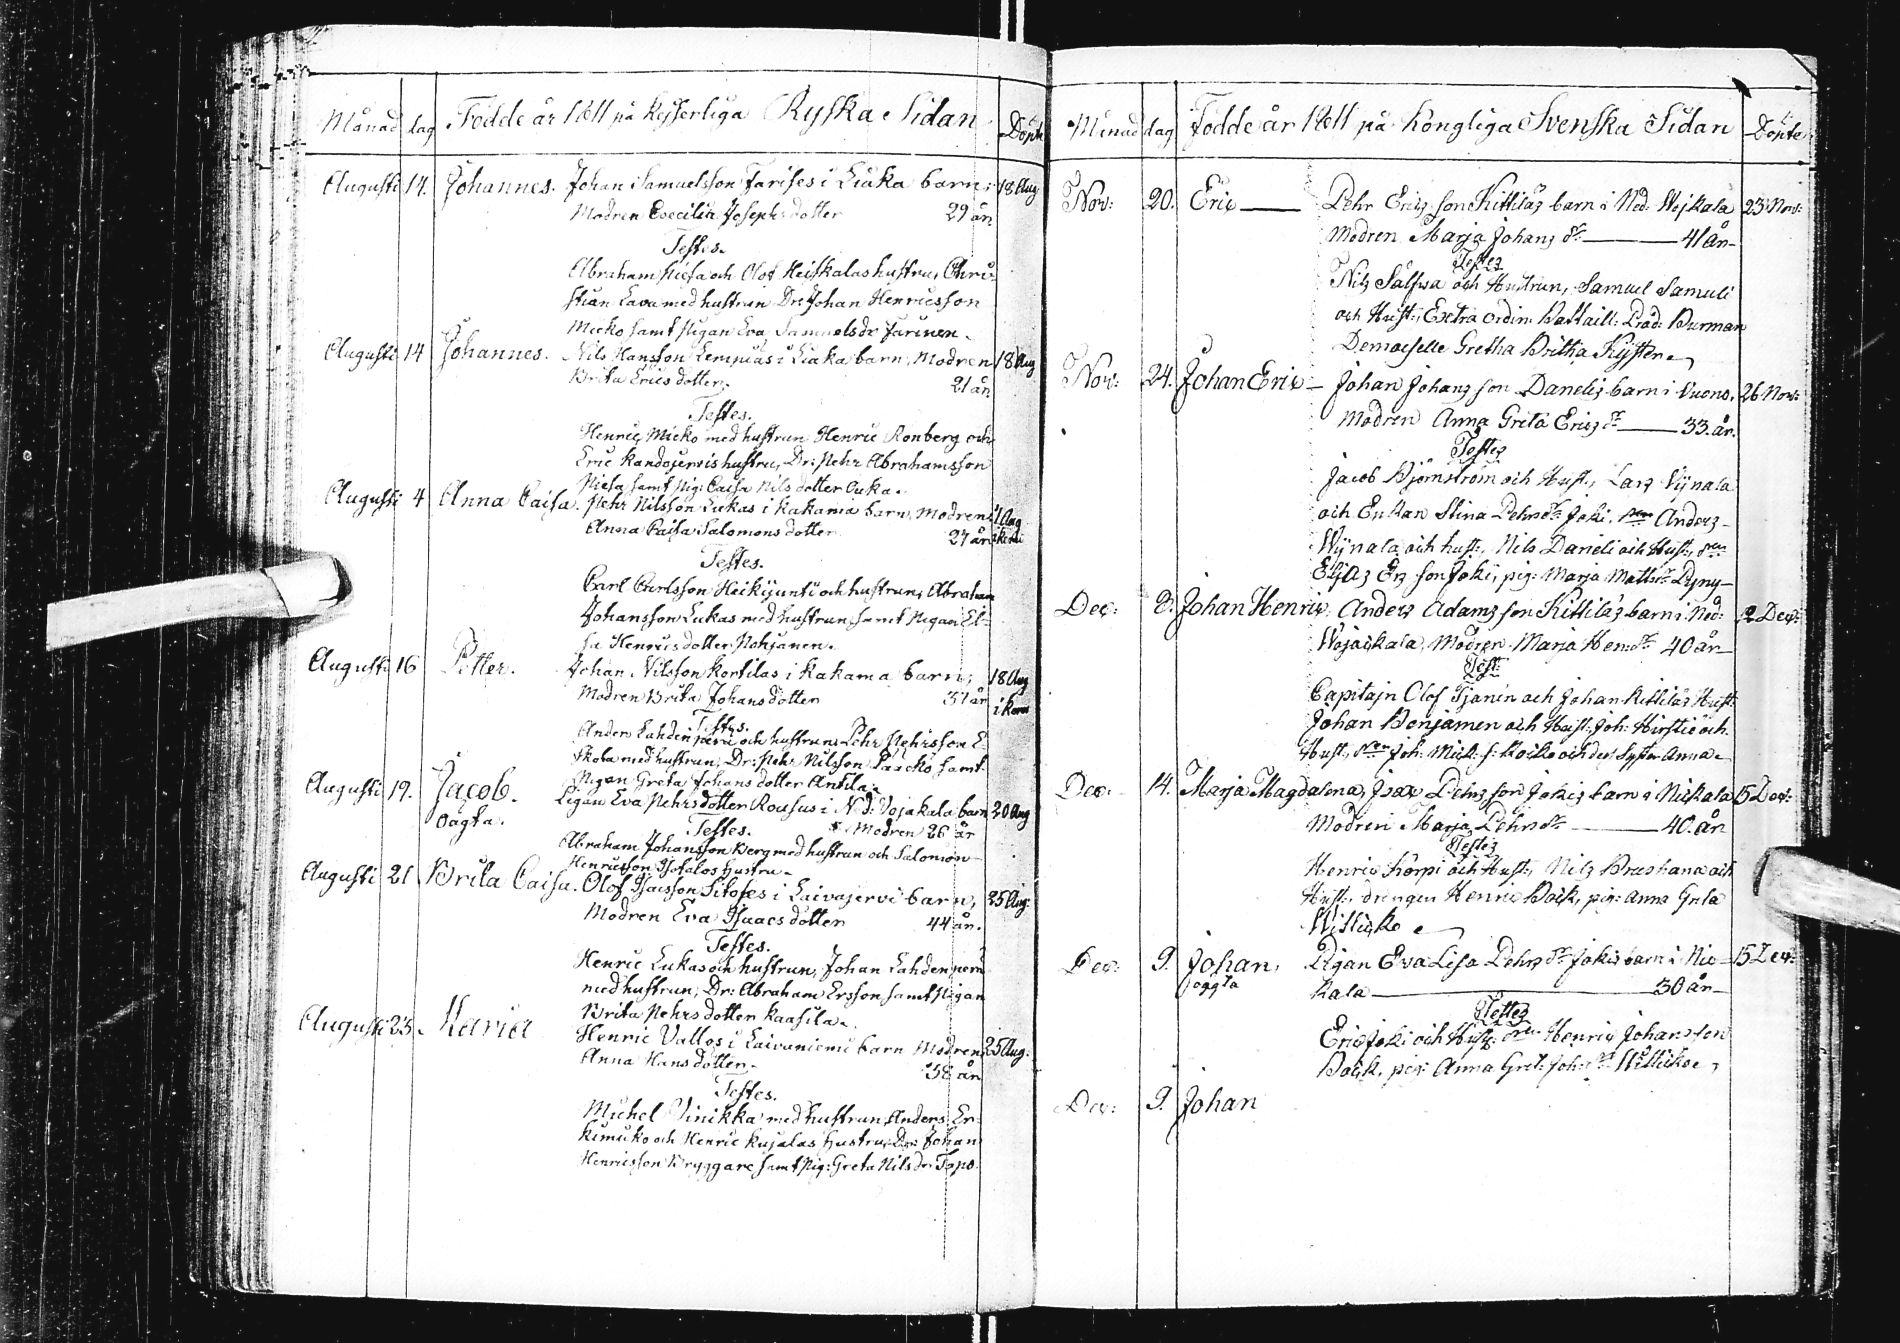 Månad dag Födde år 1811 på Kejserliga Ryska Sidan Döpte
Augusti 14. Johannes. Johan Samuelsson Farises i Liaka barn; 18 Aug
Modren Caecilia Josephsdotter 29 år
Testes.
Abraham Niesa och Olof Heiskalas hustru, Chri-
stian Lava med hustrun Dr: Johan Henricsson
Micko samt Pigan Eva Samuelsdr Farinen.
Augusti 14 Johannes. Nils Hansson Lempiäs i Liaka barn, Modren 18 Aug
Brita Ericsdotter. 21 år
Testes.
Henric Micko med hustrun Henric Rönberg och
Eric Kandojervis hustru, Dr: Pehr Abrahamsson
Niesa samt Pig: Caisa Nilsdotter Outa.
Augusti 4 Anna Caisa. Pehr Nilsson Lukas i Kakama barn, Modren Aug
Anna Caisa Salomonsdotter 27 år
Testes.
Carl Carlsson Heikijunti och hustrun, Abraham
Johansson Lukas med hustrun, samt Pigan El-
sa Henricsdotter Pohjanen.
Augusti 16 Petter. Johan Nilsson Kortilas i Kakama barn; 18 Aug
Modren Brita Johansdotter 37 år
Testes.
Anders Lahdenperä och hustrun, Pehr Pehrsson E-
skola med hustrun, Dr: Pehr Nilsson Paacko, samt
Pigan Greta Johansdotter Antila.
Augusti 19. Jacob. Pigan Eva Pehrsdotter Rousus i N:d: Vojakala barn 20 Aug
oägta. Testes. Modren 26 år
Abraham Johansson Berg med hustrun och Salomon
Henricsson Isotalos hustru.
Augusti 21 Brita Caisa. Olof Isacsson Sitojes i Laivajervi barn, 25 Aug:
Modren Eva Isaacsdotter 44 år.
Testes.
Henric Lukas och hustrun, Johan Lahdenperä
med hustrun, Dr: Abraham Ersson samt Pigan
Brita Pehrsdotter Kaasila.
Augusti 23. Maria Henric Vallos i Laivaniemi barn Modren 25 Aug:
Anna Hansdotter. 38 år
Testes.
Michel Vinikka med hustrun, Anders Er-
kimuko och Henric Kujalas hustru, Dr: Johan
Henricsson Bryggare samt Pig: Greta Nilsdr: Topo.
Månad dag Födde år 1811 på Kongliga Svenska Sidan Döpte
Nov: 20. Eric Pehr Ericsson Kittiläs barn i Ned. Wojkala 23 Nov:
Modren Marja Johans dr 41 år
Testes
Nils och Hustrun, Samuel Samuli
och Hust:, Extra ordin: Battaill: Präd: Burman
Demoiselle Gretha Britha
Nov: 24. Johan Eric Johan Johansson Danelis barn i Vuono, 26 Nov:
Modren Anna Greta Erics dr 33. år.
Testes
Jacob Björnström och Hust:, Lars Vynala
och Enkan Stina Pehrsdr Joki, Anders
Wynala och hust:, Nils Danieli och Hust:,
Elias Ersson Joki, pig: Marja Matts dr
Dec: 8. Johan Henric. Anders Adamsson Kittiläs barn i Ned: Dec:
Wojackala, Modren Marja Hen: dr 40 år
Test:
Capitajn Olof och Johan Kittiläs Hust:
Johan Benjamen och Hust: Joh: och
Hust:, Joh: och des Syster Anna
Dec: 14. Marja Magdalena, Isac Pehrsson Jokis barn i Nickala 15 Dec:
Modren Marja Pehrs dr 40. år
Testes
Henric Korpi och Hust:, Nils och
Hust:, drengen Henric Bäck, pig: Anna Greta
Dec: 9. Johan, Pigan Eva Lisa Pehrs dr Jokis barn i Nic- 15 Dec:
oägta kala 30 år
Testes
Eric Joki och Hust: Henric Johansson
Bäck, pig: Anna Gret: Joh: dr
Dec: 9. Johan